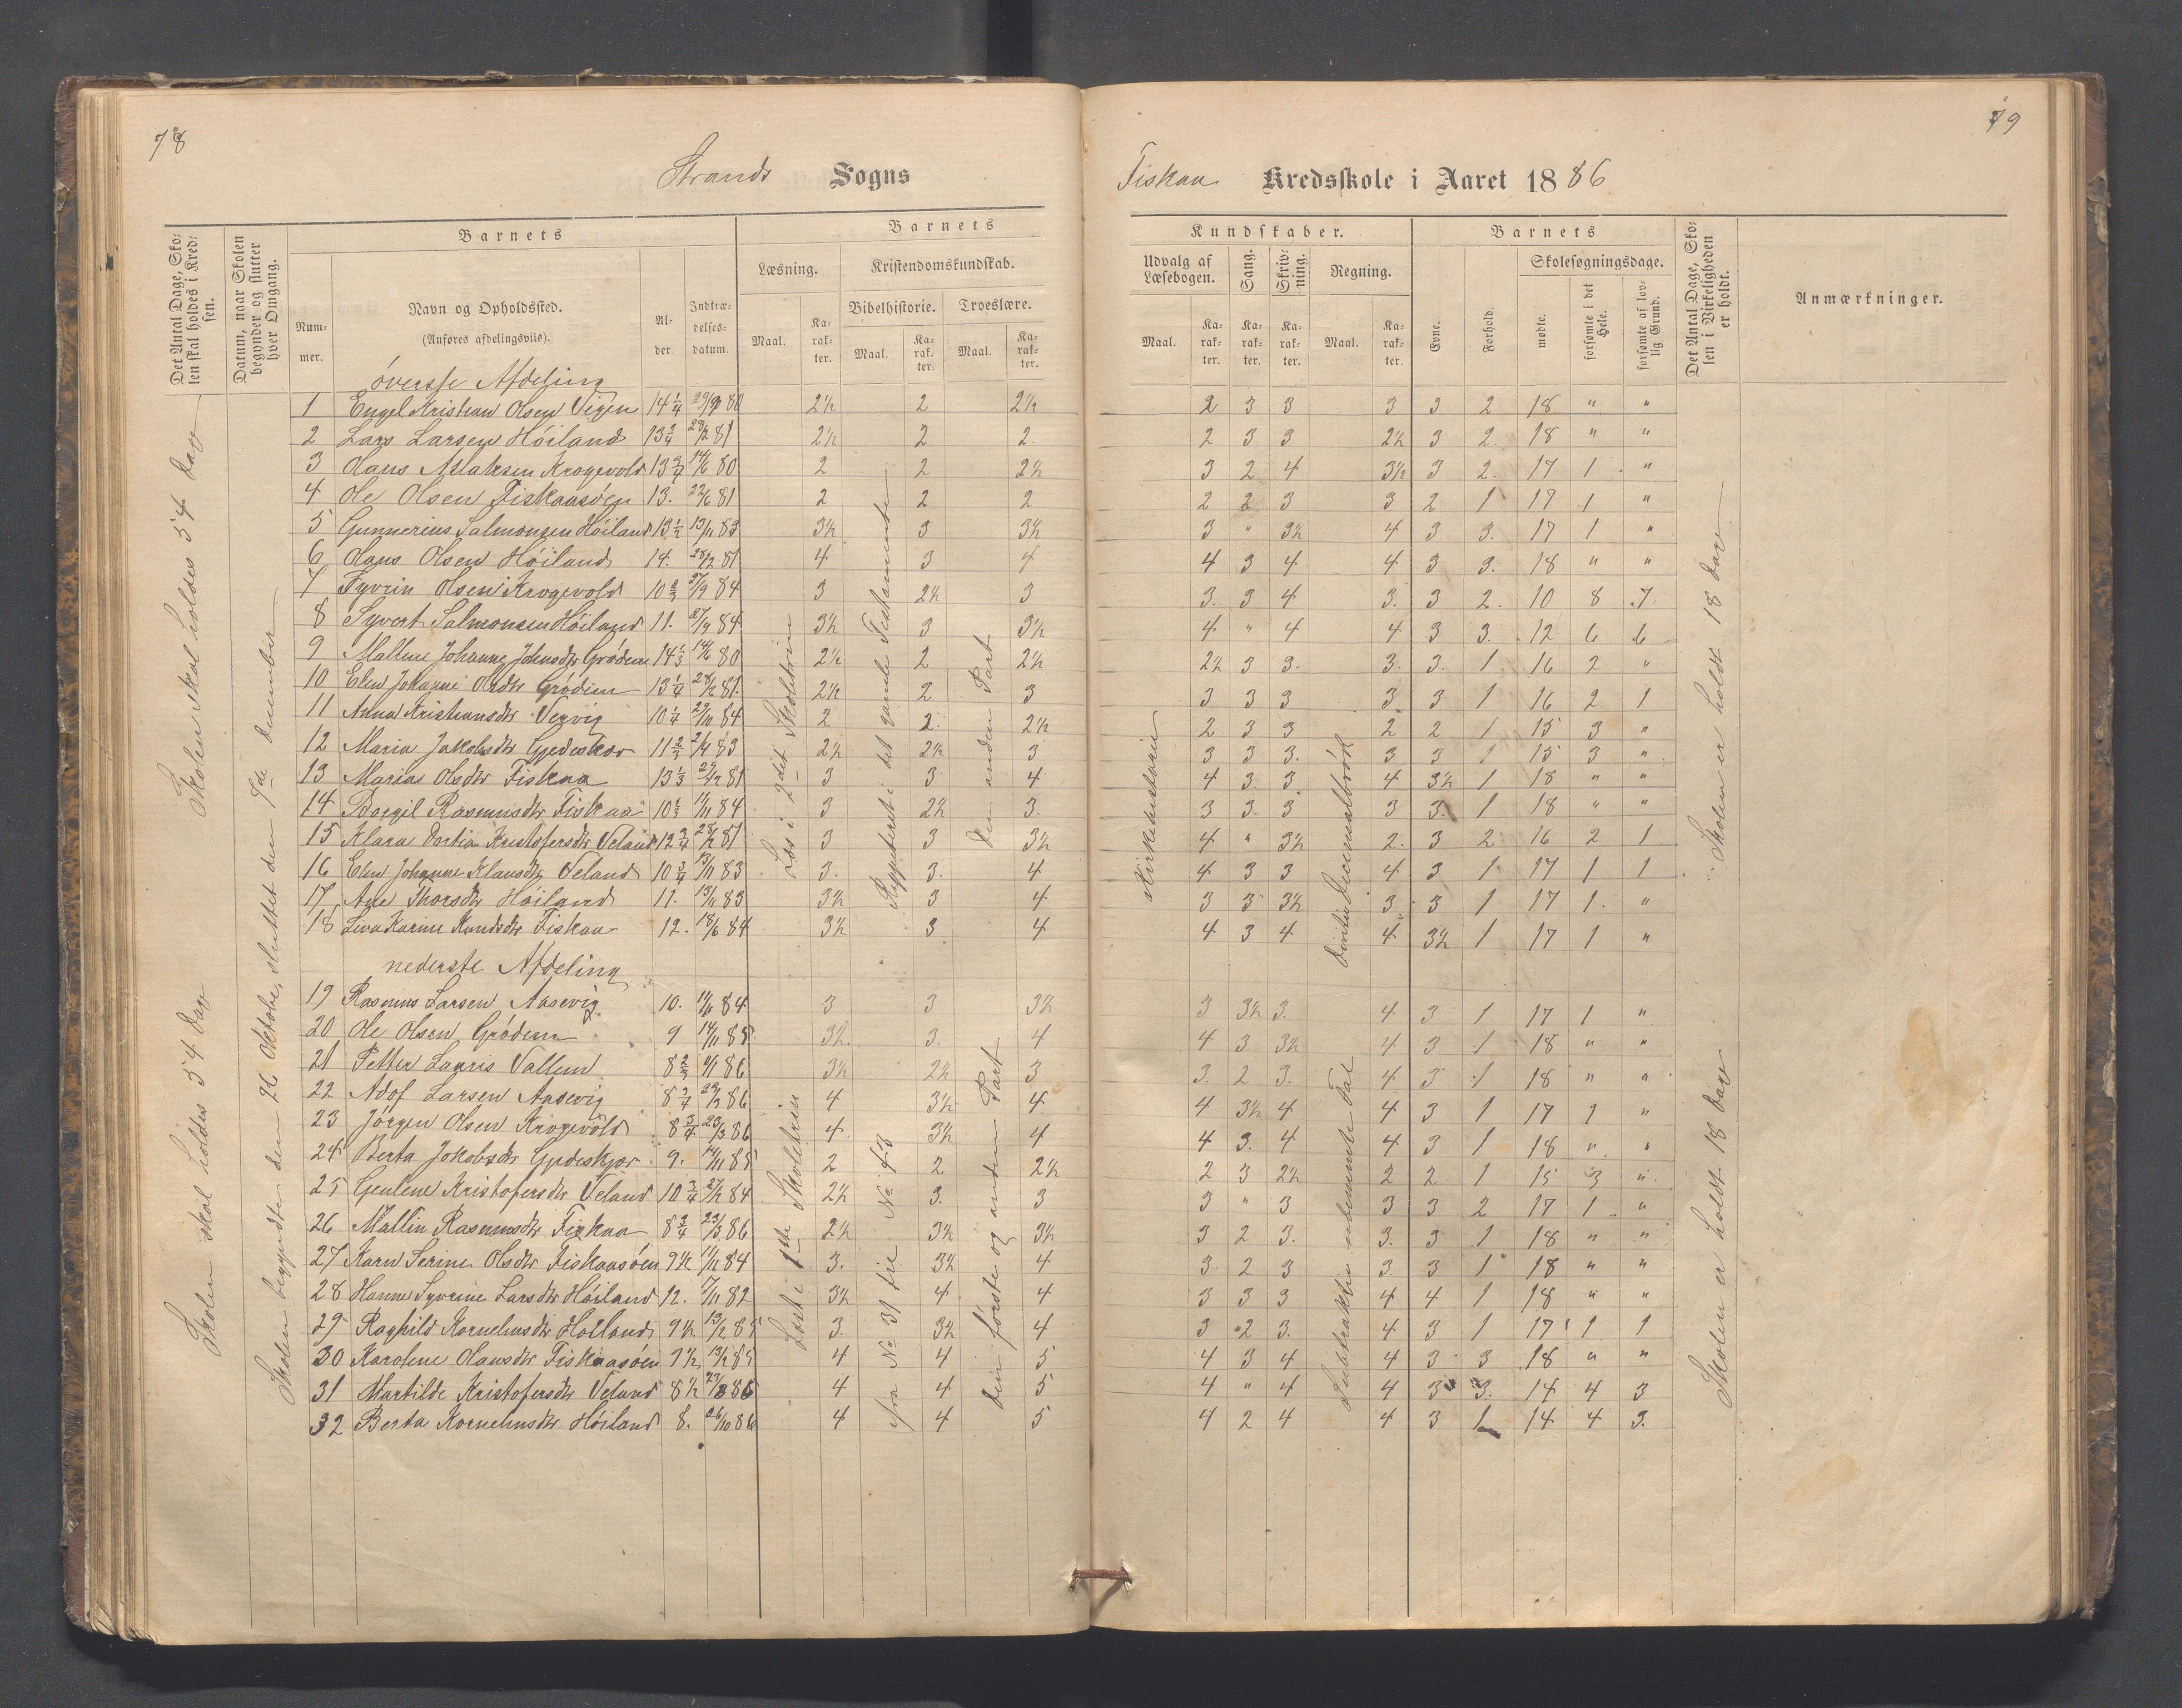 78
Strands Sogns
Det Antal Dage, Skolen skal holdes i Kredsen.
Datum, naar Skolen begynder og slutter hver Omgang.
Barnets
Barnets
Nummer.
Navn og Opholdssted.
(Anføres afdelingsviis).
Alder.
Indtrædelsesdatum.
Læsning.
Kristendomskundskab.
Bibelhistorie.
Troeslære.
Maal.
Karakter.
Maal.
Karakter.
Maal.
Karakter.
øverste Afdeling
1 Engel Kristian Olsen Vigen 14 1/4 29/9 80 2½ 2 2½
2 Lars Larsen Høiland 13 3/4 28/2 81 2½ 2 2.
3 Hans Aslaksen Krogevold 13 3/4 14/6 80 2 2 2½
4 Ole Olsen Fiskaasøen 13. 22/6 81 2 2 2
5 Gunnerius Salmonsen Høiland 13 1/2 13/11 83 3½ 3 3½
6 Hans Olsen Høiland 14. 28/2 81 4 3 4
7 Syvrin Olsen Krogevold 10 2/3 27/9 84 3 2½ 3
8 Syvert Salmonsen Høiland 11. 27/9 84 3½ 3 3½
9 Mallene Johanne Johnsdtr Grødem 14 1/3 14/6 80 2½ 2 2½
10 Elen Johanne Olsdtr Grødem 13 1/4 28/2 81. 2½ 2 3
11 Anna Kristiansdtr Vervig 10 1/4 29/10 84 2 2 2½
12 Maria Jakobsdtr Gjedeskær 11 2/3 2/4 83 2½ 2½ 3
13 Maria Olsdtr Fiskaa 13 1/3 29/12 81 3 3 4
14 Borgil Rasmusdtr Fiskaa 10 1/2 11/11 84 3 2½ 3.
15 Klara Dortia Kristofersdtr Veland 12 3/4 28/2 81 3 3 3½
16 Elen Johanne Klausdtr Veland 10 3/4 13/11 83 3. 3. 4
17 Ane Thorsdtr Høiland 11. 13/11 83 3½ 3 4
18 Liva Karine Knudsdtr Fiskaa 12. 18/6 84 3½ 3 4
nederste Afdeling
19 Rasmus Larsen Aasevig 10. 11/6 84 3 3 3½
20 Ole Olsen Grødem 9 14/11 85 3½ 3. 4
21 Petter Lauris Vallem 8 2/3 4/1 86 3½ 2½ 3
22 Adof Larsen Aasevig 8 3/4 29/3 86 4 3½ 4
23 Jørgen Olsen Krogevold 8 3/4 23/3 86 4. 3½ 4
24 Berta Jokobsdtr Gjedeskjær 9. 14/11 85 2 2 2½
25 Geulene Kristofersdtr Veland 10 3/4 27/2 84 2½ 3. 3
26 Mallin Rasmusdtr Fiskaa 8 3/4 23/3 86 2½ 3½ 3½
27 Karn Serine Olsdtr Fiskaasøen 9½ 11/11 84 3. 3½ 4
28 Hanne Syvrine Larsdtr Høiland 12. 7/11 82 3½ 4. 4
29 Raghild Kornelinsdtr Høiland 9½ 13/2 85 3. 3½ 4
30 Karolene Hansdtr Fiskaasøen 9½ 13/2 85 4 4 5
31 Martilde Kristofersdtr Veland 8½ 23/3 86 4 4 5
32 Berta Kornelinsdtr Høiland 8. 26/10 86 4 4 5
Skolen skal holdes 54 Dage
Skolen skal holdes 54 Dage
Skolen begyndte den 26 Oktober, sluttet den 9de December
Læs i 2det Skoletrin
Reppeteret i det gamle Testamente
den anden Part
Læst i 1ste Skoletrin
fra No 31 til No 48
den første og anden Part
79
Fiskaa Kredsskole i Aaret 1886
Kundskaber.
Barnets
Udvalg af Læsebogen.
Sang.
Skrivning.
Regning.
Skolesøgningsdage.
Maal.
Karakter.
Karakter.
Karakter.
Maal.
Karakter.
Evne.
Forhold.
mødte.
forsømte i det Hele.
forsømte af lovlig Grund.
Det Antal Dage, Skolen i Virkeligheden er holdt.
Anmærkninger.
2 3 3 3 3 2 18 " "
2 3 3 2½ 3 2 18 " "
3 2 4 3½ 3 2. 17 1 "
2 2 3 3 2 1 17 1 "
3 " 3½ 4 3 3. 17 1 "
4 3 4 4 3 3. 18 " "
3. 3 4 3. 3 2. 10 8 7
4 " 4 4 3 3. 12 6 6
2½ 3 3. 3. 3. 1. 16 2 "
3 3 3 3 3 1 16 2 1
2 3 3 2 2 1 15 3 "
3 3 3. 3 3 1 15 3 "
4 3 3 4 3½ 1 18 " "
3 3. 3 3 3. 1 18 " "
4 " 3½ 2. 3 2 16 2 1
4 3 3 4 3 1 17 1 1
3 3 3½ 3 3 1 17 1. "
4 3 4 4 3½ 1 17 1 "
3 3½ 3. 4 3 1 17 1 "
4 3 3½ 4 3 1 18 " "
3. 2 3. 4 3 1 18 " "
4 3½ 4 4 3 1 17 1 "
4 3. 4 4 3 1 18 " "
2 3 2½ 2 2 1 15 3 "
3 " 3 3 3 2 17 1 "
3 2 3. 3. 3 1 18 " "
3 2 3 3 3 1 18 " "
3 3 3 4 4 1 18 " "
3 2 3. 4 3 1 17 1 1
4 3 4 4 3 3 18 " "
4 " 4 4 3 3. 14 4 3
4 2 4 4 3 1 14 4 3.
Kirkehistorie
Division Decimalbrøk
Subtraktion ubenævnte Tal
Skolen er holdt 18 Dage
Skolen er holdt 18 Dage